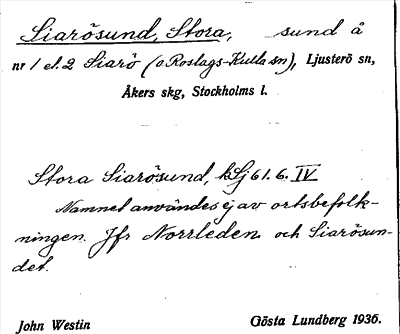 Siarösund, Stora, sund å
nr 1 el. 2 Siarö (o Roslags-Kulla sn), Ljusterö sn,
Åkers skg, Stockholms l.
Stora Siarösund, kSj 61. 6. IV
Namnet användes ej av ortsbefolk-
ningen. Jfr Norrleden och Siarösun-
det.
John Westin Gösta Lundberg 1936.